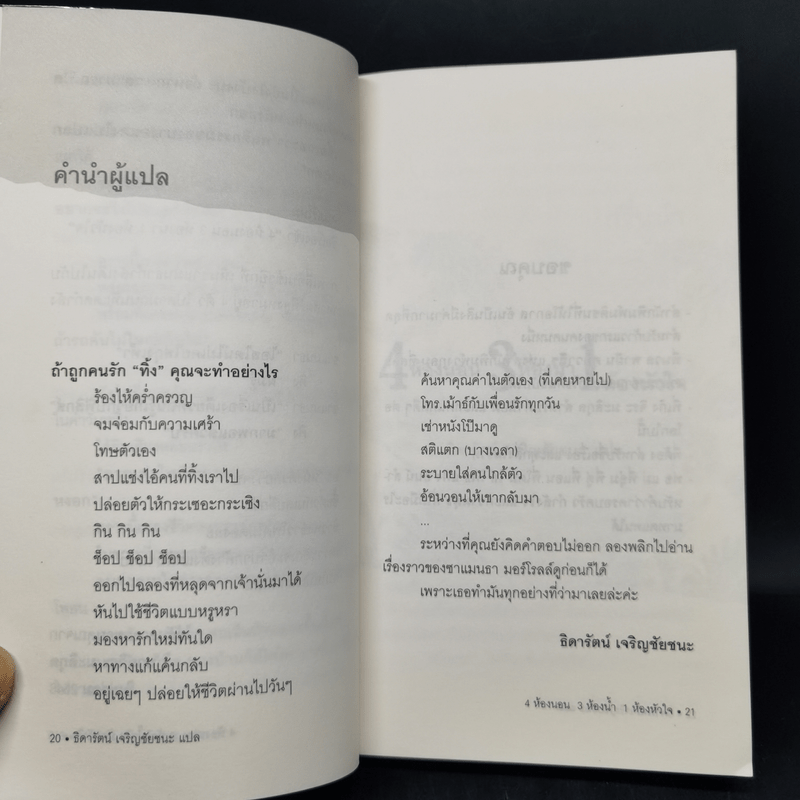 คำนำผู้แปล
ถ้าถูกคนรัก “ทิ้ง” คุณจะทำอย่างไร
ร้องไห้คร่ำครวญ
จมจ่อมกับความเศร้า
โทษตัวเอง
สาปแช่งไอ้คนที่ทิ้งเราไป
ปล่อยตัวให้กระเซอะกระเซิง
กิน กิน กิน
ช็อป ช็อป ช็อป
ออกไปฉลองที่หลุดจากเจ้านั่นมาได้
หันไปใช้ชีวิตแบบหรูหรา
มองหารักใหม่ทันใด
หาทางแก้แค้นกลับ
อยู่เฉยๆ ปล่อยให้ชีวิตผ่านไปวันๆ
20 • ธิดารัตน์ เจริญชัยชนะ แปล
ค้นหาคุณค่าในตัวเอง (ที่เคยหายไป)
โทร.เม้าธ์กับเพื่อนรักทุกวัน
เช่าหนังโป๊มาดู
สติแตก (บางเวลา)
ระบายใส่คนใกล้ตัว
อ้อนวอนให้เขากลับมา
...
ระหว่างที่คุณยังคิดคำตอบไม่ออก ลองพลิกไปอ่าน
เรื่องราวของซาแมนธา มอร์โรลส์ดูก่อนก็ได้
เพราะเธอทำมันทุกอย่างที่ว่ามาเลยล่ะค่ะ
ธิดารัตน์ เจริญชัยชนะ
4 ห้องนอน 3 ห้องน้ำ 1 ห้องหัวใจ • 21